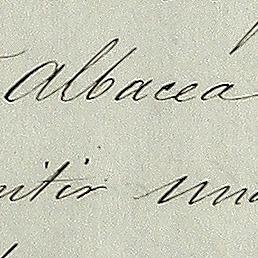 albacea
mitir una